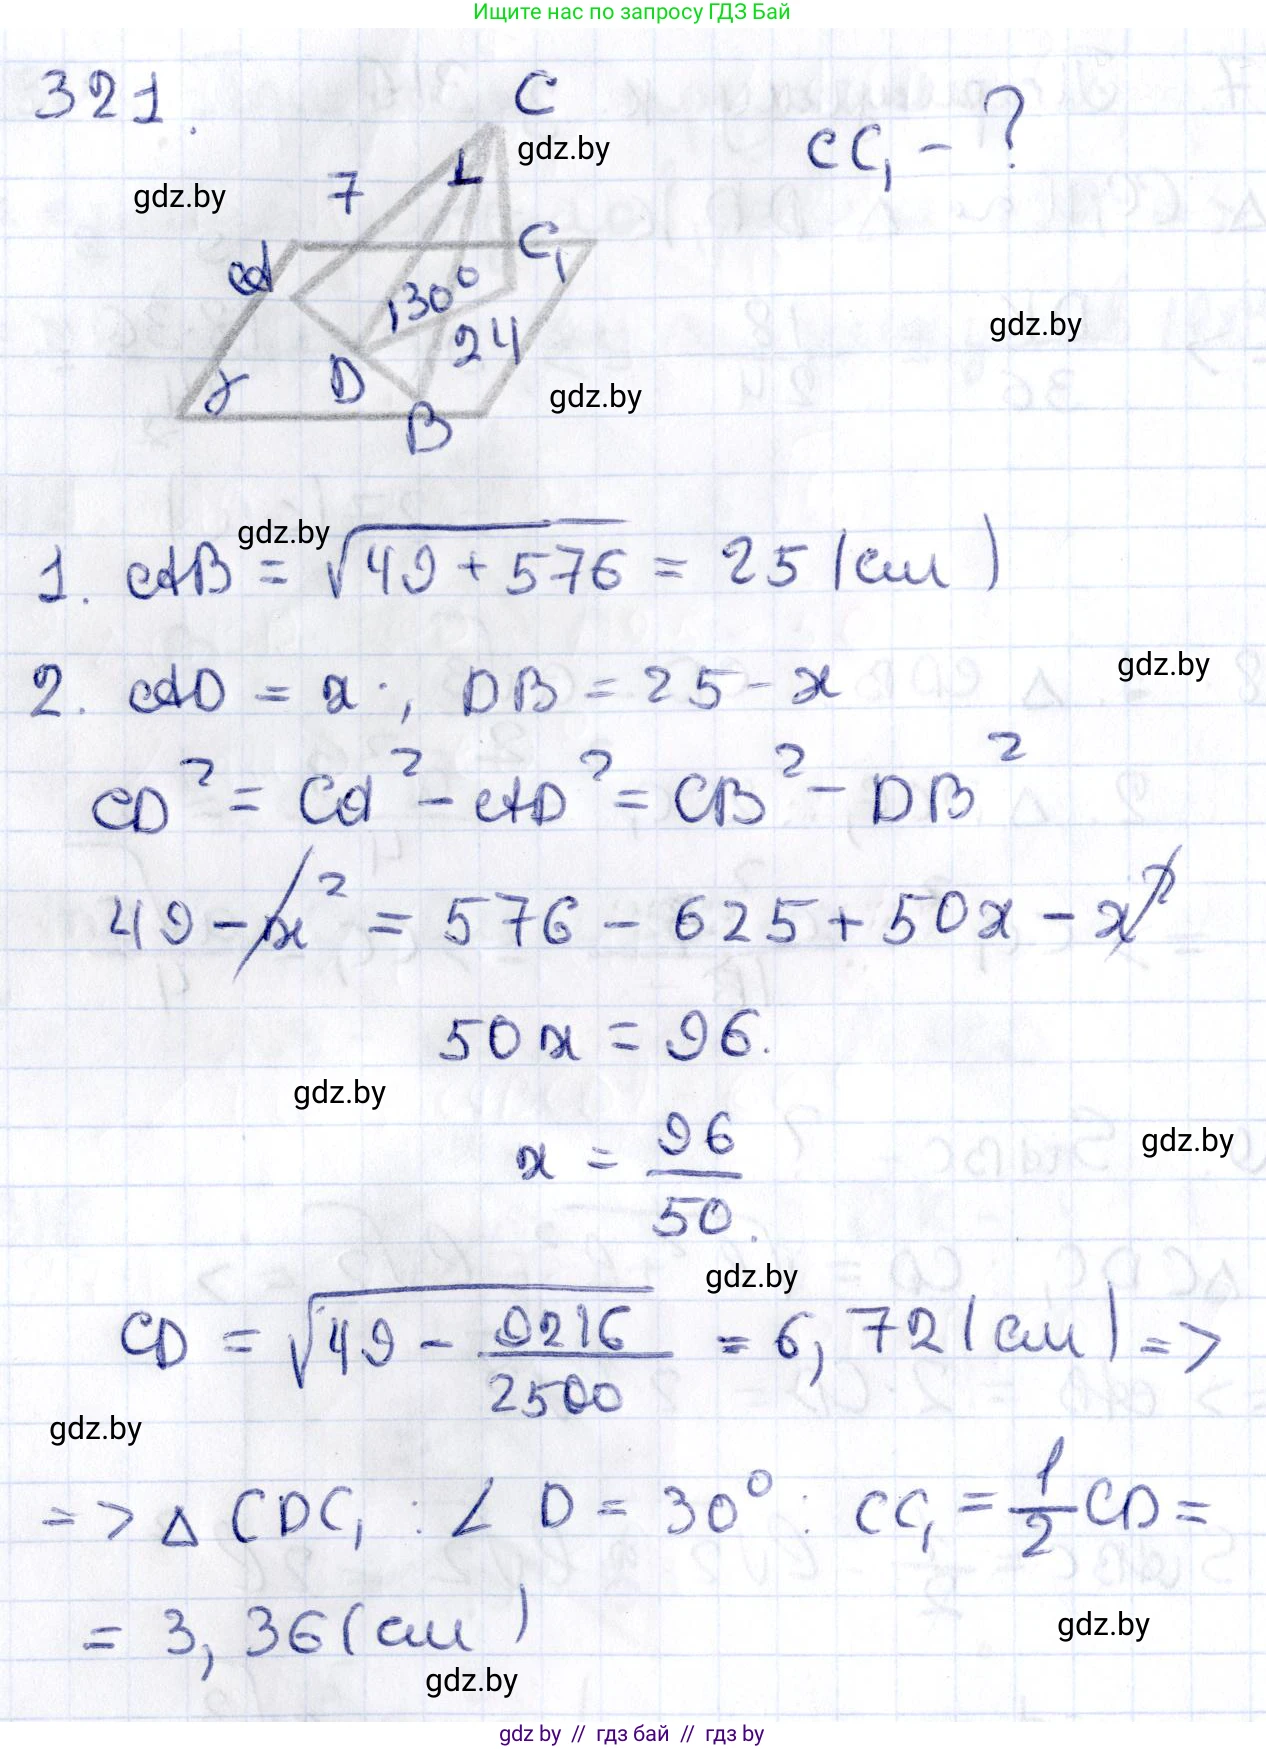 Ищите нас по запросу ГДЗ Бай
321.
C
CC₁ - ?
gdz.by
gdz.by
7
L
C₁
A
130°
24
gdz.by
γ
D
gdz.by
B
gdz.by
1. AB = √49 + 576 = 25 (см)
gdz.by
2. AD = x ; DB = 25 - x
CD² = CA² - AD² = CB² - DB²
49 - x² = 576 - 625 + 50x - x²
50x = 96.
gdz.by
x = 96/50.
gdz.by
gdz.by
CD = √49 - 9216/2500 = 6,72 (см) =>
gdz.by
=> △ CDC₁ : ∠ D = 30° : CC₁ = 1/2 CD =
= 3,36 (см)
gdz.by
gdz.by
gdz by // гдз бай // гдз by